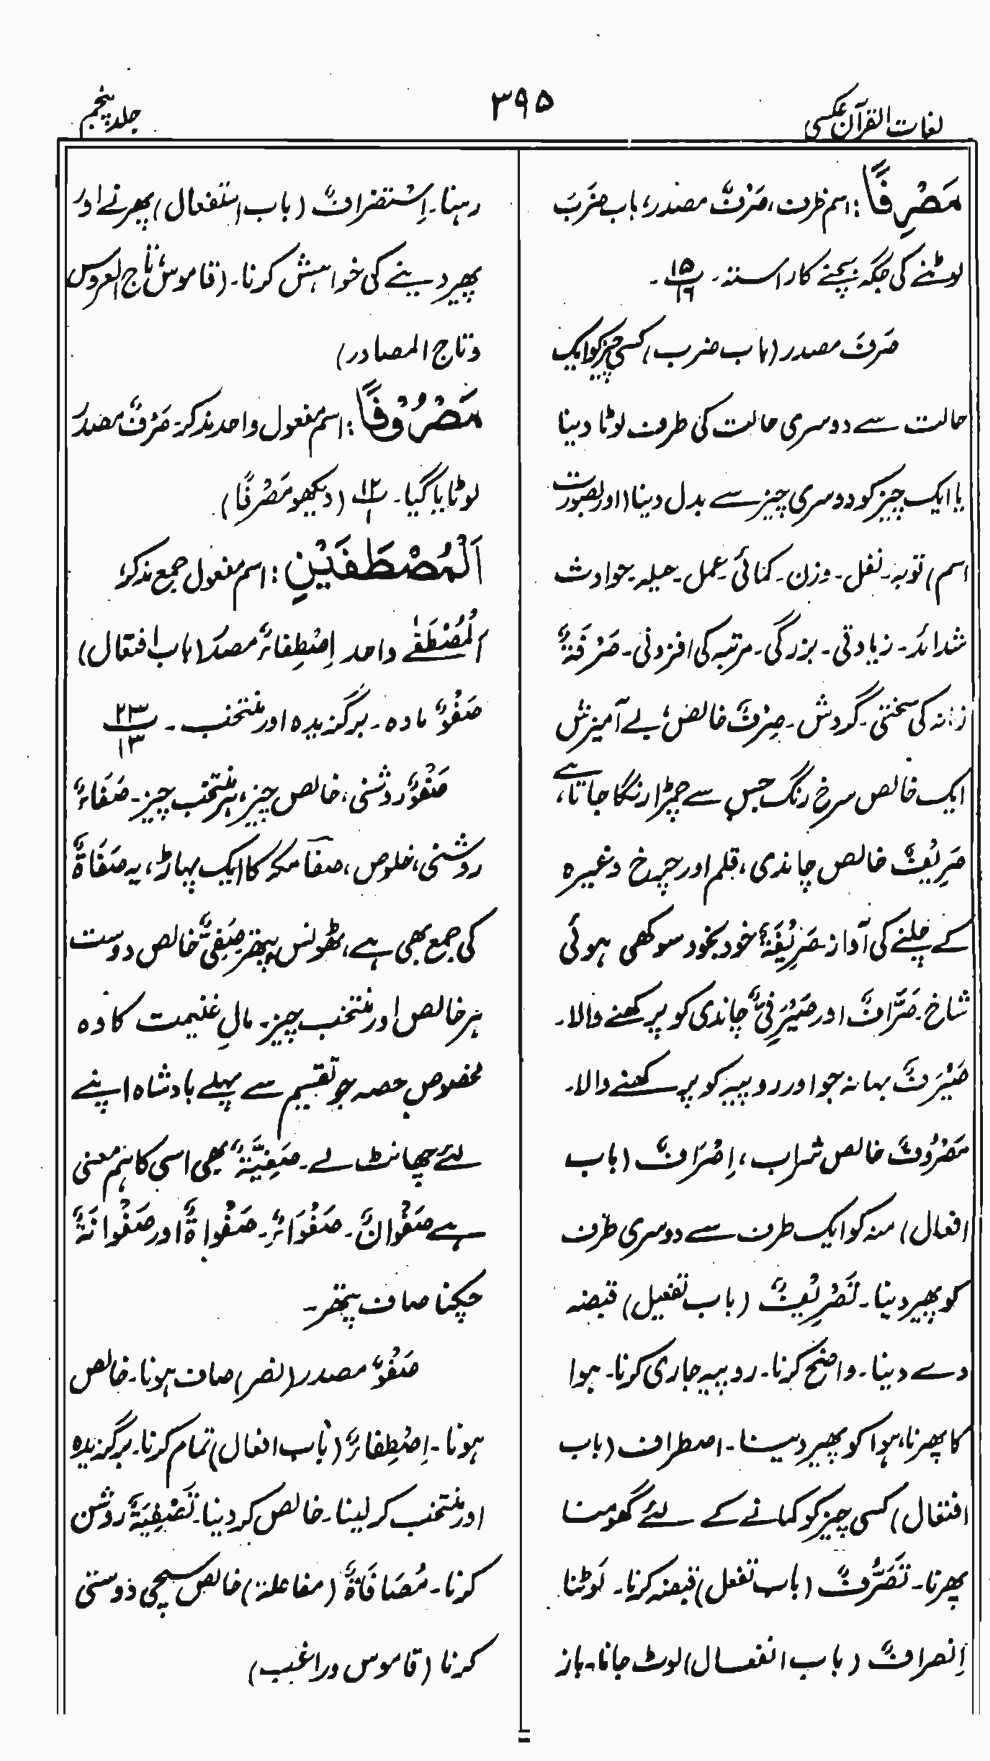 لغات القرآن عکسی
۳۹۵
جلد پنجم
مَصْرِفًا: اسم ظرف، صَرْفٌ مصدر، باب ضَرَبَ
لوٹنے کی جگہ بچنے کا راستہ۔ ۱۵/۱۶۔
صَرفٌ مصدر (باب ضرب) کسی چیز کو ایک
حالت سے دوسری حالت کی طرف لوٹا دینا
یا ایک چیز کو دوسری چیز سے بدل دینا (اور بصورت
اسم) توبہ۔ نفل۔ وزن۔ کمائی۔ عمل۔ حیلہ۔ حوادث
شدائد۔ زیادتی۔ بزرگی۔ مرتبہ کی افزونی۔ صَرْفَةٌ
زمانہ کی سختی۔ گردش۔ صِرْفٌ خالص، بے آمیزش
ایک خالص سرخ رنگ جس سے چمڑا رنگا جاتا ہے،
صَرِیْفٌ خالص چاندی، قلم اور چرخ وغیرہ
کے چلنے کی آواز۔ صَرِیْفَةٌ خود بخود سوکھی ہوئی
شاخ۔ صَرَّافٌ اور صَیْرَفِیٌّ چاندی کو پرکھنے والا۔
صَیْرَفٌ بہانہ جو اور روپیہ کو پرکھنے والا۔
مَصْرُوْفٌ خالص شراب، اِصْرَافٌ (باب
افعال) منہ کو ایک طرف سے دوسری طرف
کو پھیر دینا۔ تَصْرِیْفٌ (باب تفعیل) قبضہ
دے دینا۔ واضح کرنا۔ روپیہ جاری کرنا۔ ہوا
کا پھرنا، ہوا کو پھیر دینا۔ اصطراف (باب
افتعال) کسی چیز کو کمانے کے لئے گھومنا
پھرنا۔ تَصَرُّفٌ (باب تفعل) قبضہ کرنا۔ لَوٹنا
اِنصرافٌ (باب انفعال) لوٹ جانا، باز
رہنا۔ اِسْتِصْرَافٌ (باب استفعال) پھرنے اور
پھیر دینے کی خواہش کرنا۔ (قاموس، تاج العروس
و تاج المصادر)
مَصْرُوْفًا: اسم مفعول واحد مذکر، صَرْفٌ مصدر
لوٹایا گیا۔ ۱۲/۱ (دیکھو مَصْرِفًا)
اَلْمُصْطَفَیْنِ: اسم مفعول جمع مذکر،
اَلْمُصْطَفٰے واحد اِصْطِفَاءٌ مصدر (باب افتعال)
صَفْوٌ مادہ۔ برگزیدہ اور منتخب۔ ۲۳/۱۳
صَفْوٌ روشنی، خالص چیز، ہر منتخب چیز۔ صَفَاءٌ
روشنی، خلوص، صفَا مکہ کا ایک پہاڑ، یہ صَفَاةٌ
کی جمع بھی ہے، ٹھونس پتھر صَفِیٌّ خالص دوست
ہر خالص اور منتخب چیز۔ مالِ غنیمت کا وہ
مخصوص حصہ جو تقسیم سے پہلے بادشاہ اپنے
لئے چھانٹ لے۔ صَفِیَّةٌ بھی اسی کا ہم معنی
ہے صَفْوَانٌ۔ صَفْوَاءٌ۔ صَفْوَاةٌ اور صَفْوَانَةٌ
چکنا صاف پتھر۔
صَفْوٌ مصدر (نصر) صاف ہونا۔ خالص
ہونا۔ اِصْطِفَاءٌ (باب افعال) تمام کرنا۔ برگزیدہ
اور منتخب کر لینا۔ خالص کر دینا۔ تَصْفِیَةٌ روشن
کرنا۔ مُصَافَاةٌ (مفاعلة) خالص سچی دوستی
کرنا (قاموس و راغب)